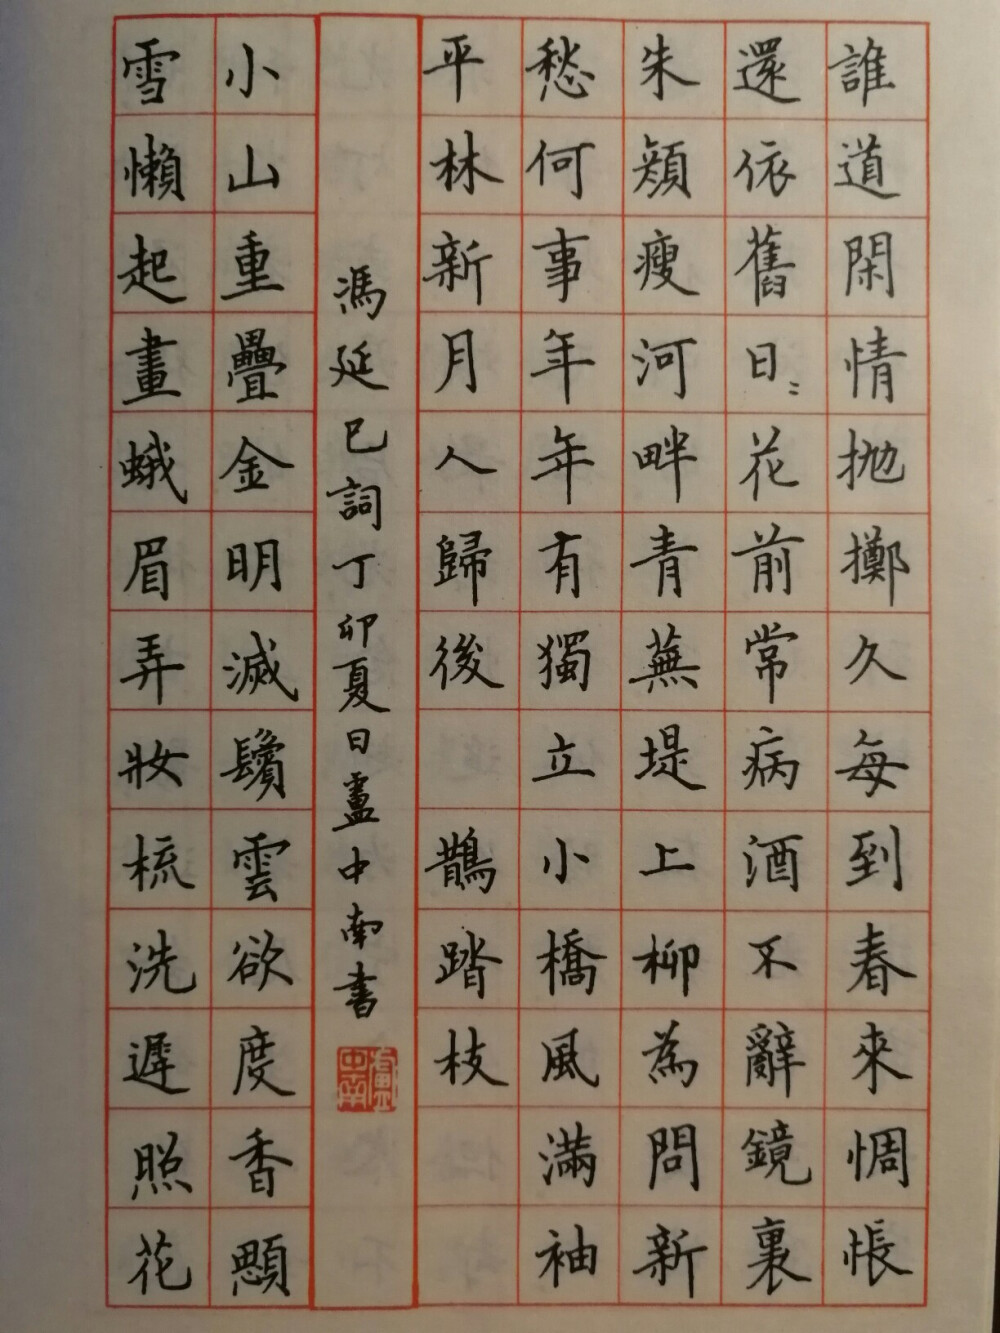 誰道閑情抛擲久每到春來惆悵
還依舊日〻花前常病酒不辭鏡裏
朱顔瘦河畔青蕪堤上柳為問新
愁何事年年有獨立小橋風滿袖
平林新月人歸後 鵲踏枝
馮延巳詞丁卯夏日盧中南書
盧中南
小山重疊金明滅鬢雲欲度香顋
雪懶起畫蛾眉弄妝梳洗遲照花